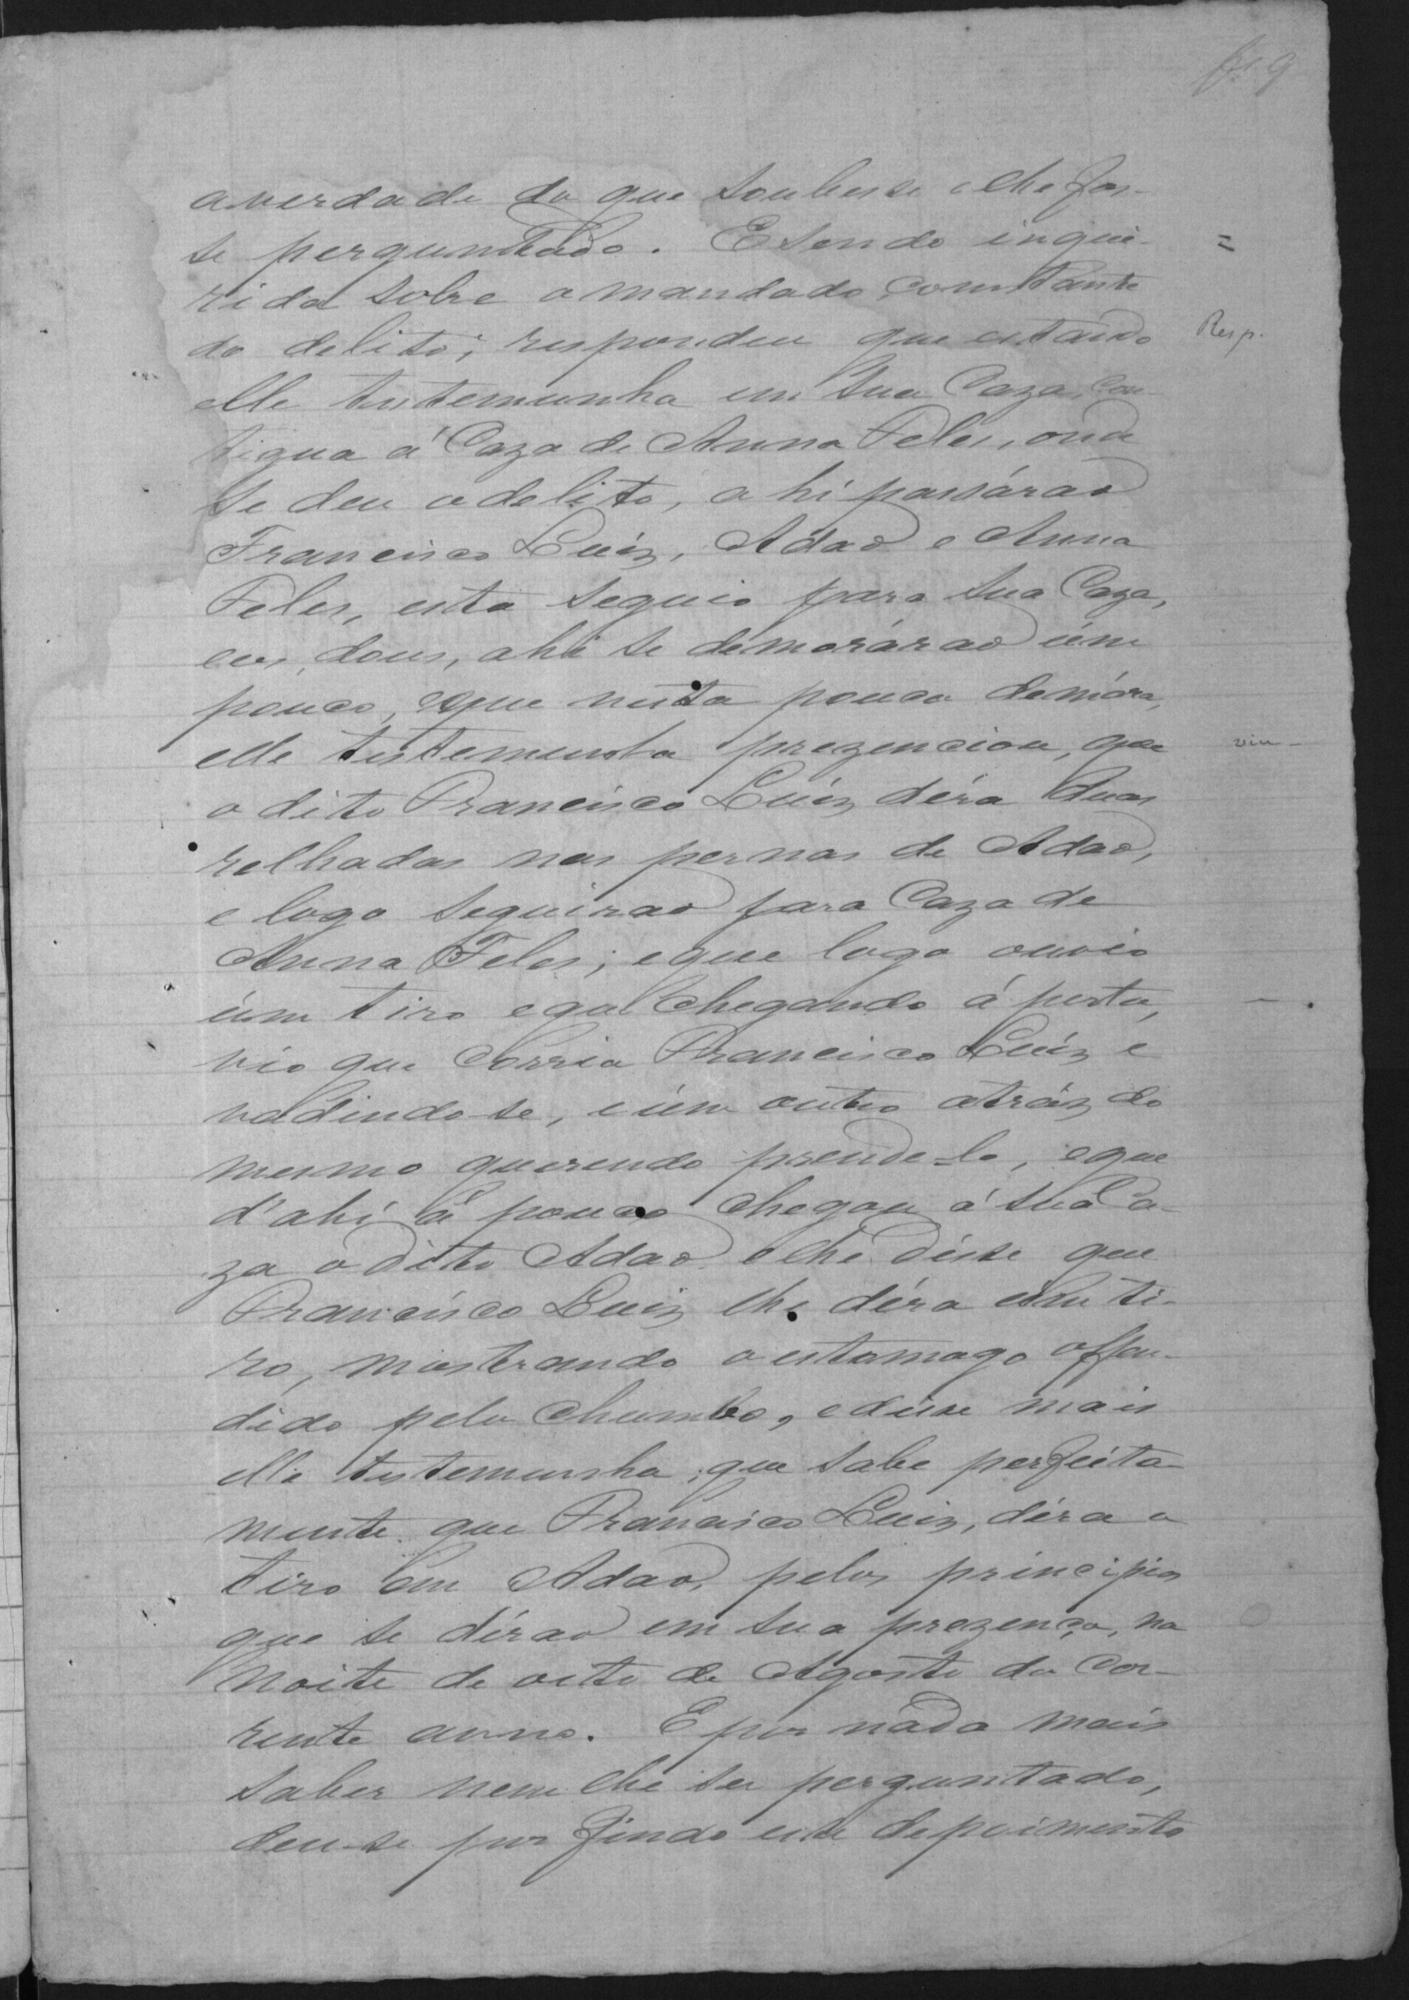 fl. 9
averdade do que soubesse elhe fos-
se perguntado. Esendo inqui-
rida sobre o mandado constante
do delito; respondeu que estando
elle testemunha em sua Caza, con-
tigua á Caza de Anna Teles, onde
se deu odelito, ahi passárao
Francisco Luiz, Adao e Anna
Teles, esta seguio para sua Caza,
eos dous, ahi se demorárao úm
pouco, eque nésta pouca demóra,
elle testemunha prezenciou, que
o dito Francisco Luiz déra duas
relhadas nas pernas de Adao,
e logo seguirao para Caza de
Anna Teles; eque logo ouvio
úm tiro e chegando á porta,
vio que Corria Francisco Luiz e
vadindo-se, e úm outro atráz do
mesmo querendo prende-lo, eque
d'ahi á pouco chegou á sua Ca-
za o dito Adao elhe disse que
Francisco Luiz lhe déra úm ti-
ro, mostrando o estomago offen-
dido pelo chumbo, edisse mais
elle testemunha, que sabe perfeita-
mente que Francisco Luiz, déra o
tiro em Adao, pelos principios
que se dérao em sua prezença, na
noite de oito de Agosto do Cor-
rente anno. E por nada mais
saber nem lhe ser perguntado,
deu-se por findo este depoimento
=
Resp.
viu